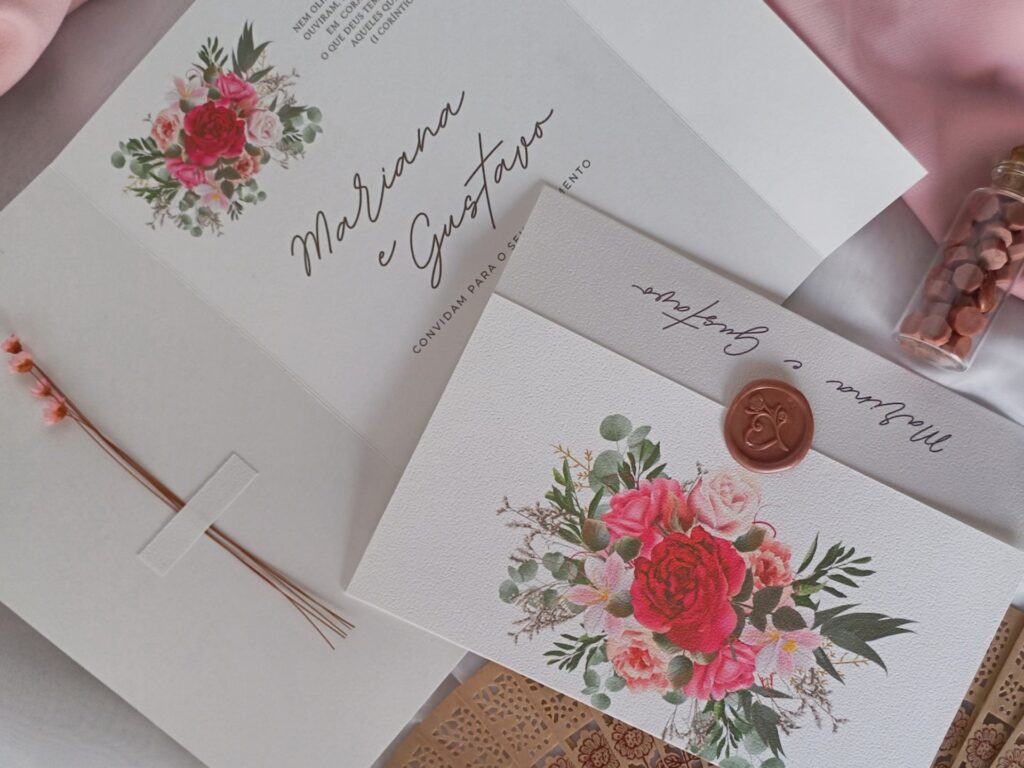 NEM OL
OUVIRAM,
EM CORA
O QUE DEUS TEM
AQUELES QU
(I CORÍNTIO
Mariana
e Gustavo
CONVIDAM PARA O SEU MENTO
Marina e Gustavo